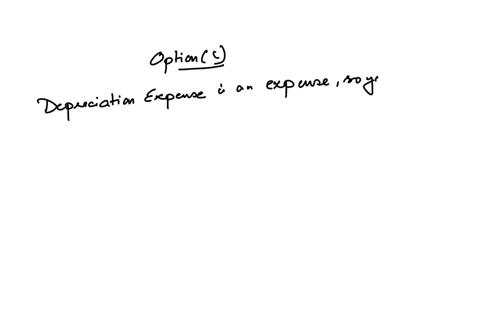 Option (c)
Depreciation Expense is an expense, so ye